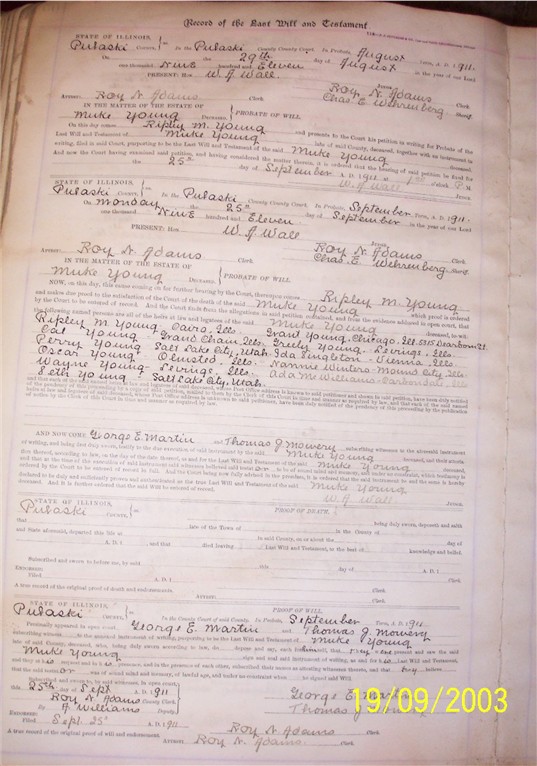 Record of the Last Will and Testament.
STATE OF ILLINOIS,
Pulaski COUNTY, In the Pulaski County County Court. In Probate, August Term, A. D. 1911.
On the 29th day of August in the year of our Lord
one thousand Nine hundred and Eleven
PRESENT: Hon W. A. Wall Judge.
Roy N. Adams Clerk
ATTEST: Roy N. Adams Clerk. Chas. E. Wehrenberg Sheriff.
IN THE MATTER OF THE ESTATE OF
Muke Young DECEASED. PROBATE OF WILL.
On this day comes Ripley M. Young and presents to the Court his petition in writing for Probate of the
Last Will and Testament of Muke Young late of said County, deceased, together with an instrument in
writing, filed in said Court, purporting to be the Last Will and Testament of the said Muke Young
And now the Court having examined said petition, and having considered the matter therein, it is ordered that the hearing of said petition be fixed for
the 25th day of September A. D. 1911 at 1 o'clock P. M.
W. A. Wall Judge.
STATE OF ILLINOIS,
Pulaski COUNTY, In the Pulaski County County Court. In Probate, September Term, A. D. 1911.
On Monday the 25th day of September in the year of our Lord
one thousand Nine hundred and Eleven
PRESENT: Hon W. A. Wall Judge.
Roy N. Adams
ATTEST: Roy N. Adams Clerk. Chas. E. Wehrenberg Sheriff.
IN THE MATTER OF THE ESTATE OF
Muke Young DECEASED. PROBATE OF WILL.
NOW, on this day, this same coming on for further hearing by the Court, thereupon comes Ripley M. Young
and makes due proof to the satisfaction of the Court of the death of the said Muke Young which proof is ordered
by the Court to be entered of record. And the Court finds from the allegations in said petition contained, and from the evidence adduced in open court, that
the following named persons are all of the heirs at law and legatees of the said Muke Young deceased, to-wit:
Ripley M Young Cairo, Ills. Grant Young, Chicago, Ill. 5915 Dearborn St.
Cal Young Grand Chain, Ills. Greely Young, Levings, Ills.
Perry Young Salt Lake City, Utah. Ida Singleton Vienna, Ills.
Oscar Young Olmsted, Ills. Nannie Winters Mound City, Ills.
Wayne Young Levings, Ills. Ada McWilliams Carbondale, Ills
Seth Young Salt Lake City, Utah.
AND NOW COME George E. Martin and Thomas J. Mowery subscribing witnesses to the aforesaid instrument
of writing, and being first duly sworn, testify to the due execution of said instrument by the said Muke Young deceased,
Muke Young
Muke Young
deceased. And it is further ordered that the said Will be entered of record. W. A. Wall Judge.
STATE OF ILLINOIS,
Pulaski COUNTY, PROOF OF DEATH.
being duly sworn, deposeth and saith
that late of the Town of in the County of
and State aforesaid, departed this life at in said County, on or about the day of
A. D. 1 and that died leaving Last Will and Testament, to the best of knowledge and belief.
Subscribed and sworn to before me, by said
this day of A. D. 1
ENDORSED: Clerk.
Filed, A. D. 1 Clerk.
A true record of the original proof of death and endorsements. ATTEST: Clerk.
STATE OF ILLINOIS, PROOF OF WILL.
Pulaski COUNTY, In the County Court of said County. In Probate, September Term, A. D. 1911.
Personally appeared in open court, George E. Martin and Thomas J. Mowery
subscribing witnesses to the annexed instrument of writing, purporting to be the Last Will and Testament of Muke Young
late of said County, deceased, who, being duly sworn according to law, do depose and say, each that they were present and saw the said
Muke Young sign and seal said instrument of writing, as and for his Last Will and Testament,
that the said testator was of sound mind and memory, of lawful age, and under no constraint when he signed said Will.
Subscribed and sworn to, by said witnesses, in open court,
this 25th day of Sept A. D. 1911 George E. Martin
Roy N. Adams County Clerk. Thomas J.
By A Williams Deputy.
ENDORSED:
Filed Sept. 25 A. D. 1911
Roy N. Adams Clerk.
A true record of the original proof of will and endorsement. ATTEST: Roy N. Adams Clerk.
19/09/2003